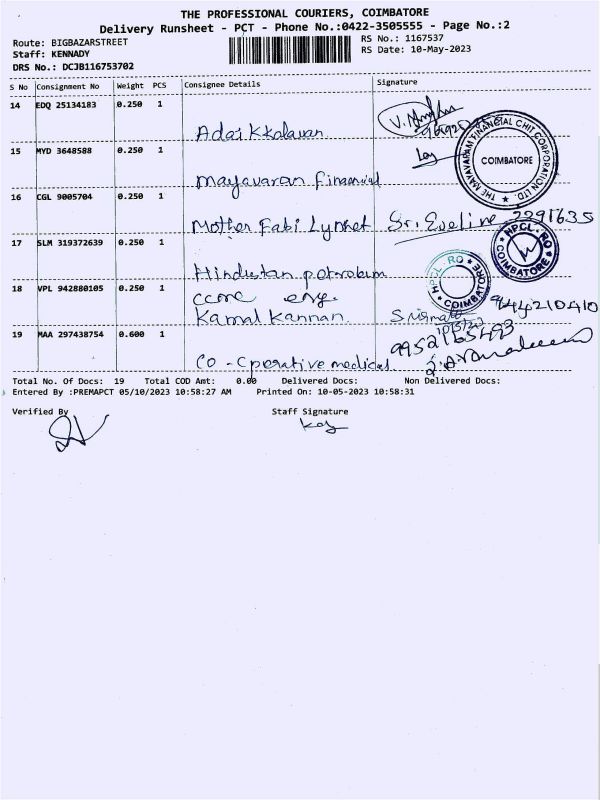 THE PROFESSIONAL COURIERS, COIMBATORE
Delivery Runsheet - PCT - Phone No.:0422-3505555 - Page No.:2
Route: BIGBAZARSTREET
RS No.: 1167537
Staff: KENNADY
RS Date: 10-May-2023
DRS No.: DCJB116753702
S No Consignment No Weight PCS Consignee Details Signature
14 EDQ 25134183 0.250 1
Adai Kkalavan
15 MYD 3648588 0.250 1
mayavaran financial
THE MAYAVARAM FINANCIAL CHIT CORPORATION LTD.
COIMBATORE
16 CGL 9005704 0.250 1
Mother Fabi Lynnet Sr. Eveline 2291635
17 SLM 319372639 0.250 1
Hindustan petroleum
HPCL - RO
COIMBATORE
HPCL - RO
COIMBATORE
18 VPL 942880105 0.250 1
Kamal Kannan.
19 MAA 297438754 0.600 1
9952165493
CO - Cperative medical
Total No. Of Docs: 19 Total COD Amt: 0.00 Delivered Docs: Non Delivered Docs:
Entered By :PREMAPCT 05/10/2023 10:58:27 AM Printed On: 10-05-2023 10:58:31
Verified By Staff Signature